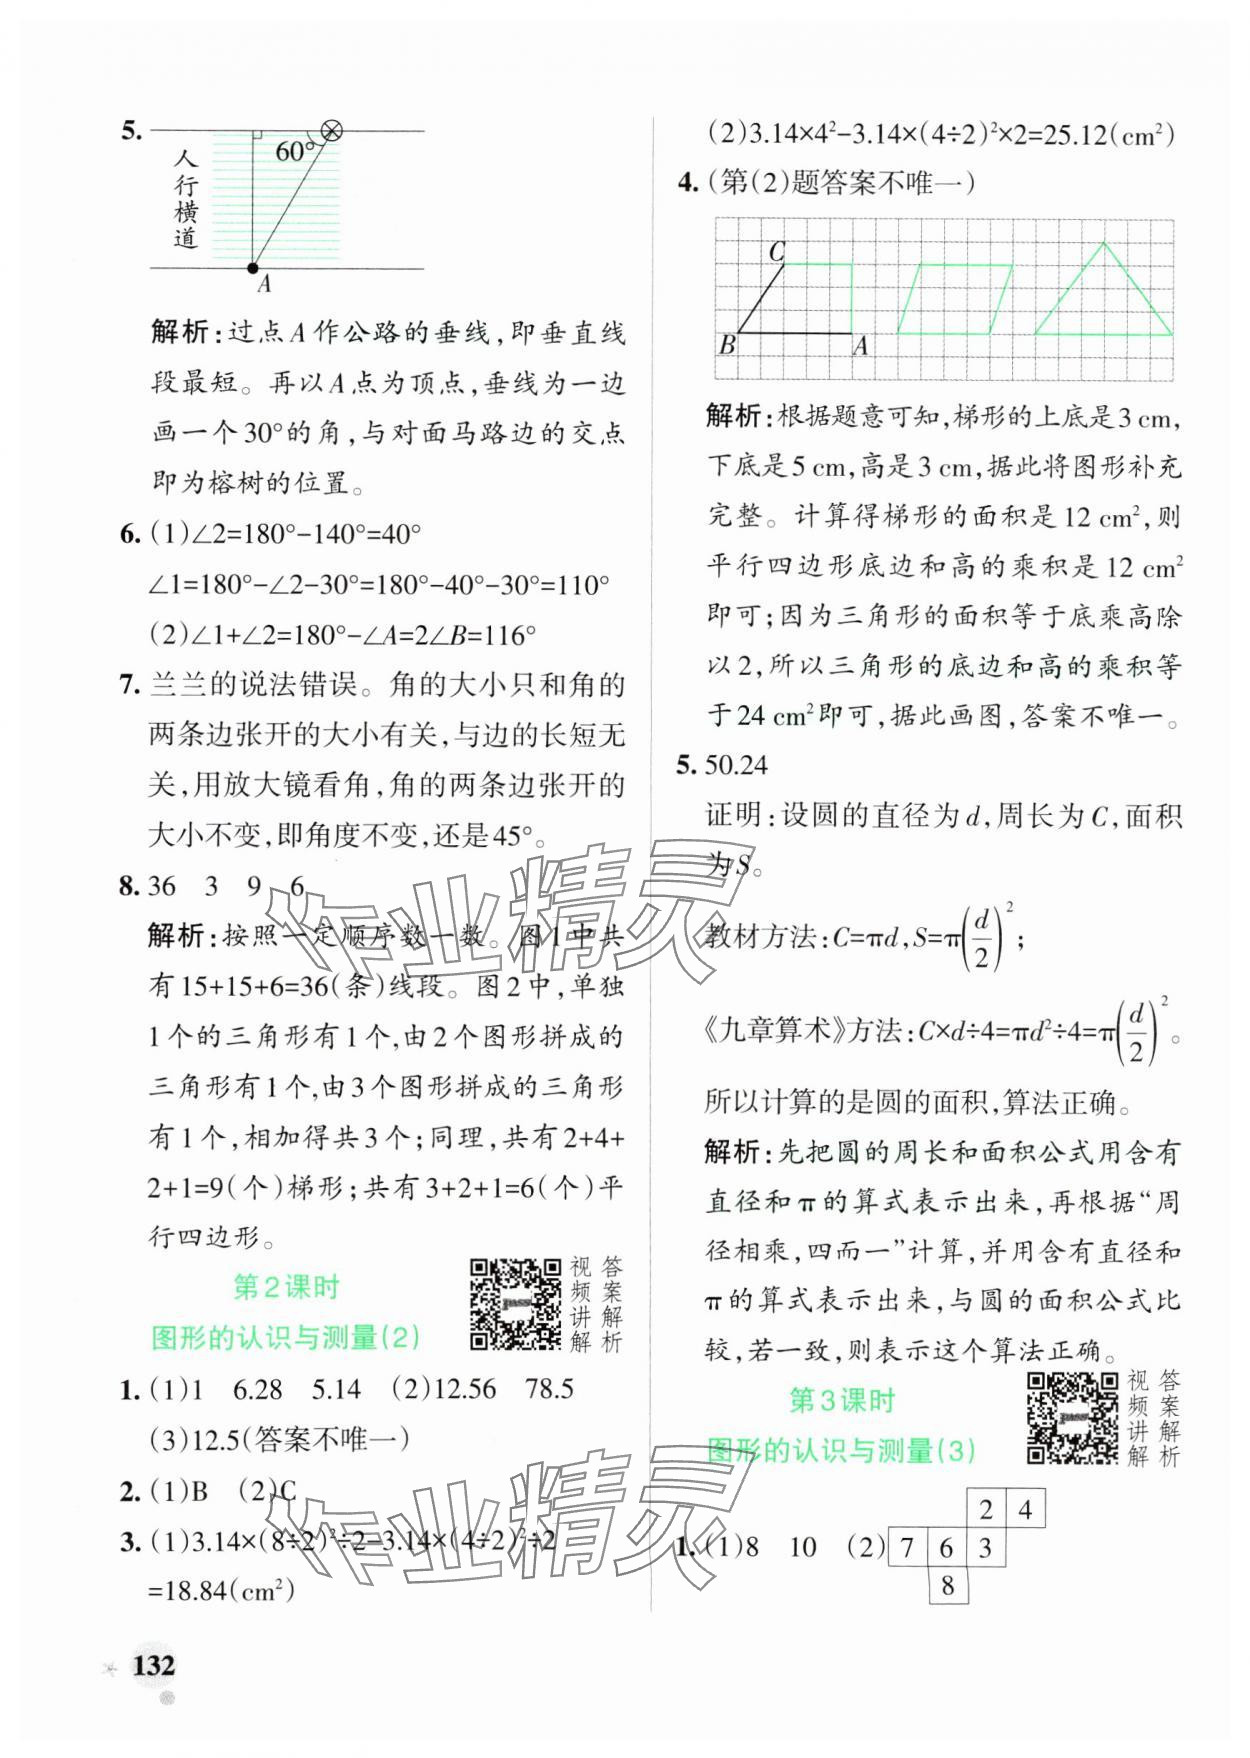 5.
60°
人行横道
A
解析:过点A作公路的垂线,即垂直线
段最短。再以A点为顶点,垂线为一边
画一个30°的角,与对面马路边的交点
即为榕树的位置。
6. (1)∠2=180°-140°=40°
∠1=180°-∠2-30°=180°-40°-30°=110°
(2)∠1+∠2=180°-∠A=2∠B=116°
7. 兰兰的说法错误。角的大小只和角的
两条边张开的大小有关,与边的长短无
关,用放大镜看角,角的两条边张开的
大小不变,即角度不变,还是45°。
8. 36 3 9 6
解析:按照一定顺序数一数。图1中共
有15+15+6=36(条)线段。图2中,单独
1个的三角形有1个,由2个图形拼成的
三角形有1个,由3个图形拼成的三角形
有1个,相加得共3个;同理,共有2+4+
2+1=9(个)梯形;共有3+2+1=6(个)平
行四边形。
第2课时
图形的认识与测量(2)
视频讲解
答案解析
pass
1. (1)1 6.28 5.14 (2)12.56 78.5
(3)12.5(答案不唯一)
2. (1)B (2)C
3. (1)3.14×(8÷2)²÷2-3.14×(4÷2)²÷2
=18.84(cm²)
132
(2)3.14×4²-3.14×(4÷2)²×2=25.12(cm²)
4. (第(2)题答案不唯一)
C
B
A
解析:根据题意可知,梯形的上底是3 cm,
下底是5 cm,高是3 cm,据此将图形补充
完整。计算得梯形的面积是12 cm²,则
平行四边形底边和高的乘积是12 cm²
即可;因为三角形的面积等于底乘高除
以2,所以三角形的底边和高的乘积等
于24 cm²即可,据此画图,答案不唯一。
5. 50.24
证明:设圆的直径为d,周长为C,面积
为S。
教材方法:C=πd,S=π(d/2)²;
《九章算术》方法:C×d÷4=πd²÷4=π(d/2)²。
所以计算的是圆的面积,算法正确。
解析:先把圆的周长和面积公式用含有
直径和π的算式表示出来,再根据“周
径相乘,四而一”计算,并用含有直径和
π的算式表示出来,与圆的面积公式比
较,若一致,则表示这个算法正确。
第3课时
图形的认识与测量(3)
视频讲解
答案解析
pass
1. (1)8 10 (2)
2 4
7 6 3
8
作业精灵
作业精灵